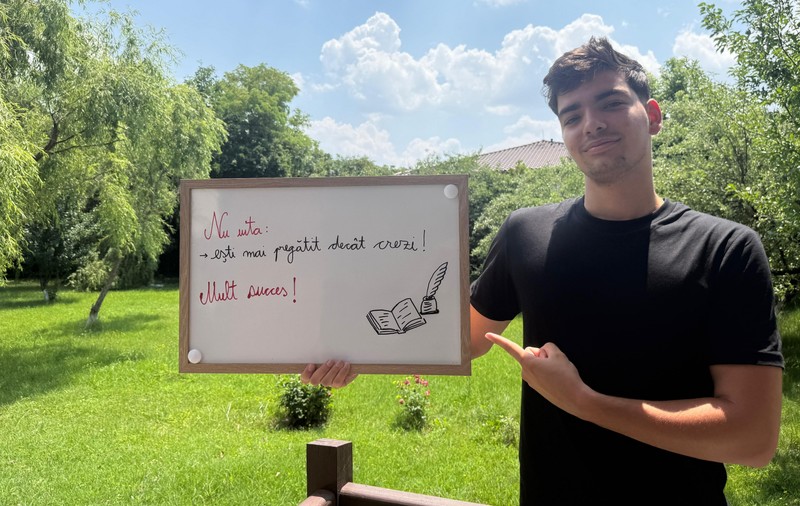 Nu uita:
→ ești mai pregătit decât crezi!
Mult succes!